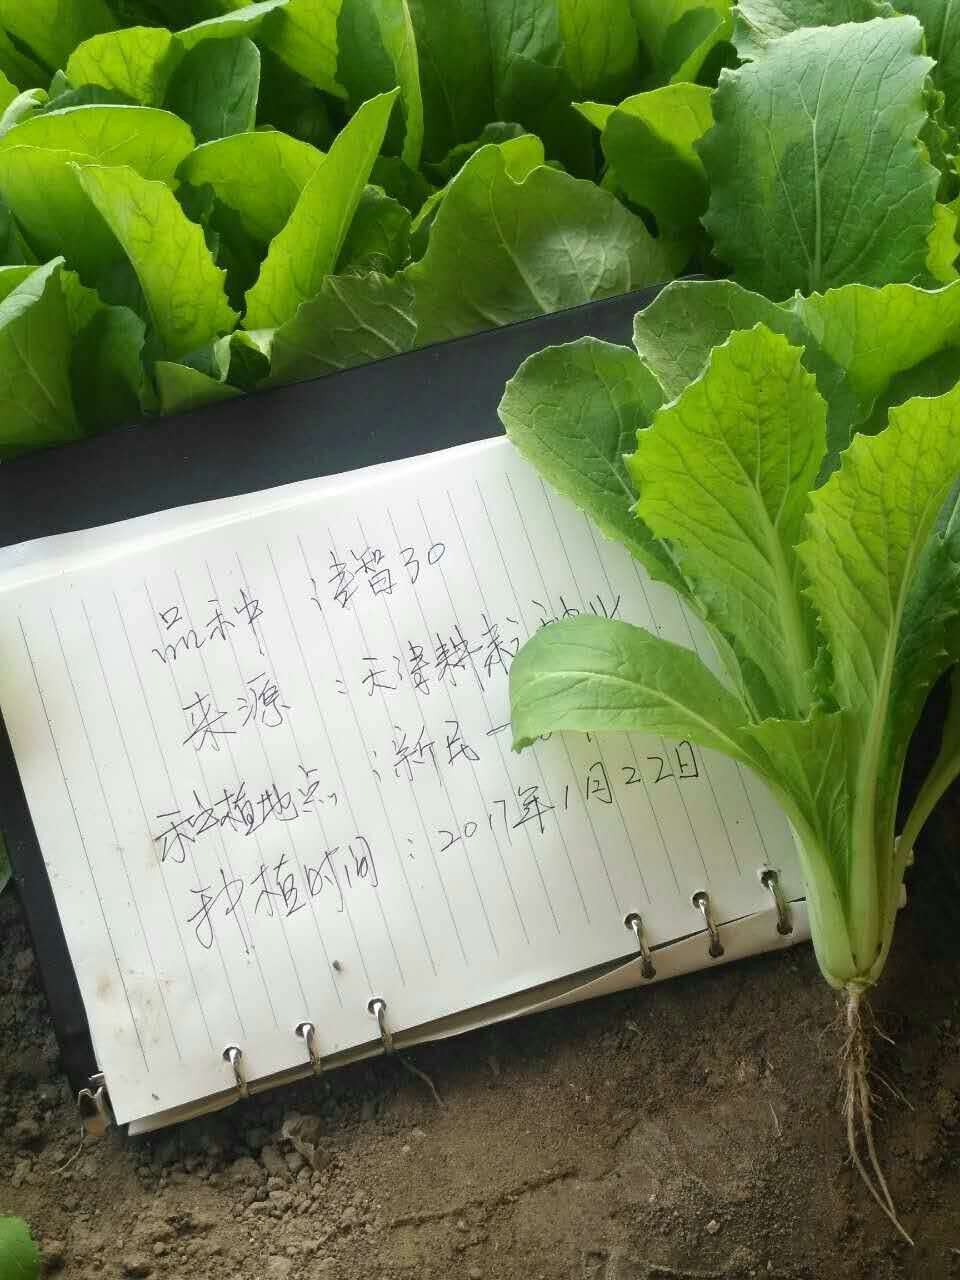 品种：津智30
来源：天津耕耘种业
种植地点：新民一
种植时间：2017年1月22日